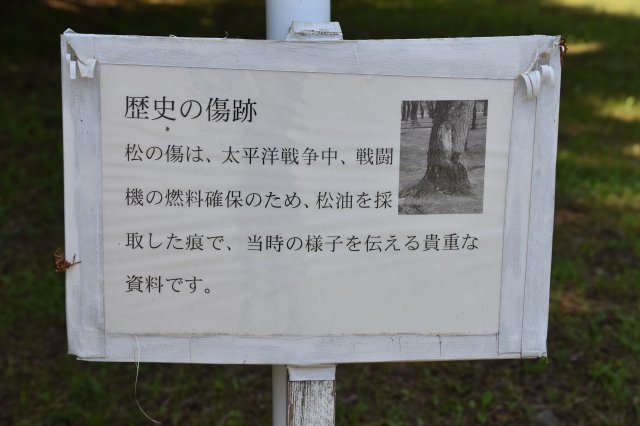 歴史の傷跡
松の傷は、太平洋戦争中、戦闘
機の燃料確保のため、松油を採
取した痕で、当時の様子を伝える貴重な
資料です。